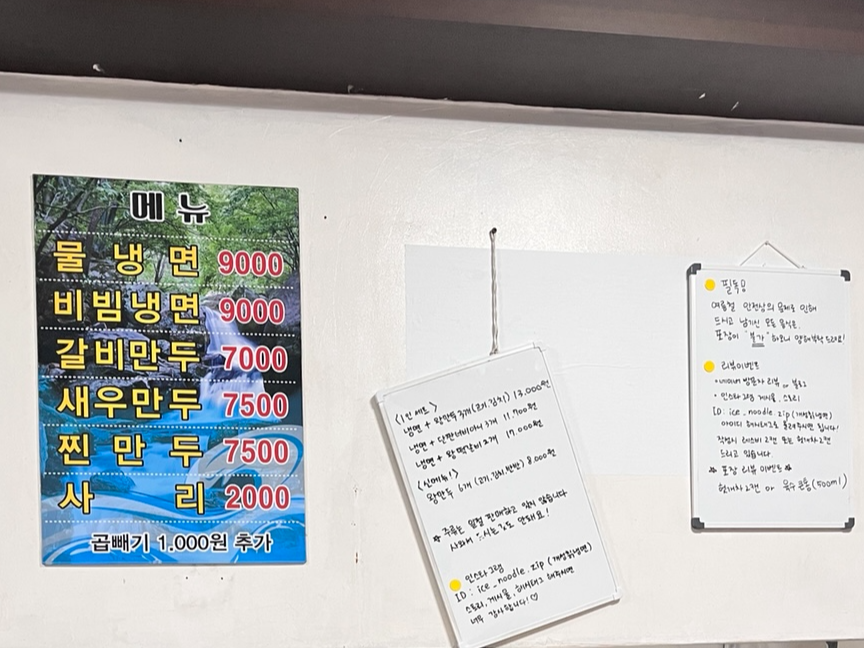 메뉴
물냉면 9000
비빔냉면 9000
갈비만두 7000
새우만두 7500
찐만두 7500
사리 2000
곱빼기 1.000원 추가
<1인 세트>
냉면 + 왕만두 3개 (고기,김치) 13,000원
냉면 + 3개 11,700원
냉면 + 2개 17,000원
<신메뉴!>
왕만두 6개 (고기,김치,반반) 8,000원
* 주류는 일절 판매하고 있지 않습니다
안돼요!
인스타그램
ID: ice_noodle.zip (개성칡냉면)
스토리, 게시물, 해시태그 해주시면
너무 감사합니다! ♡
필독!
여름철 안전상의 문제로 인해
드시고 남기신 모든 음식은
포장이 "불가" 하오니 양해부탁드려요!
리뷰이벤트
• 네이버 방문자 리뷰 or 블로그
• 인스타그램 게시물, 스토리
ID: ice_noodle.zip (개성칡냉면)
아이디 해시태그로 올려주시면 됩니다!
작성시 2캔 또는 2캔
드리고 있습니다.
* 포장 리뷰 이벤트 *
2캔 or 육수 (500ml)